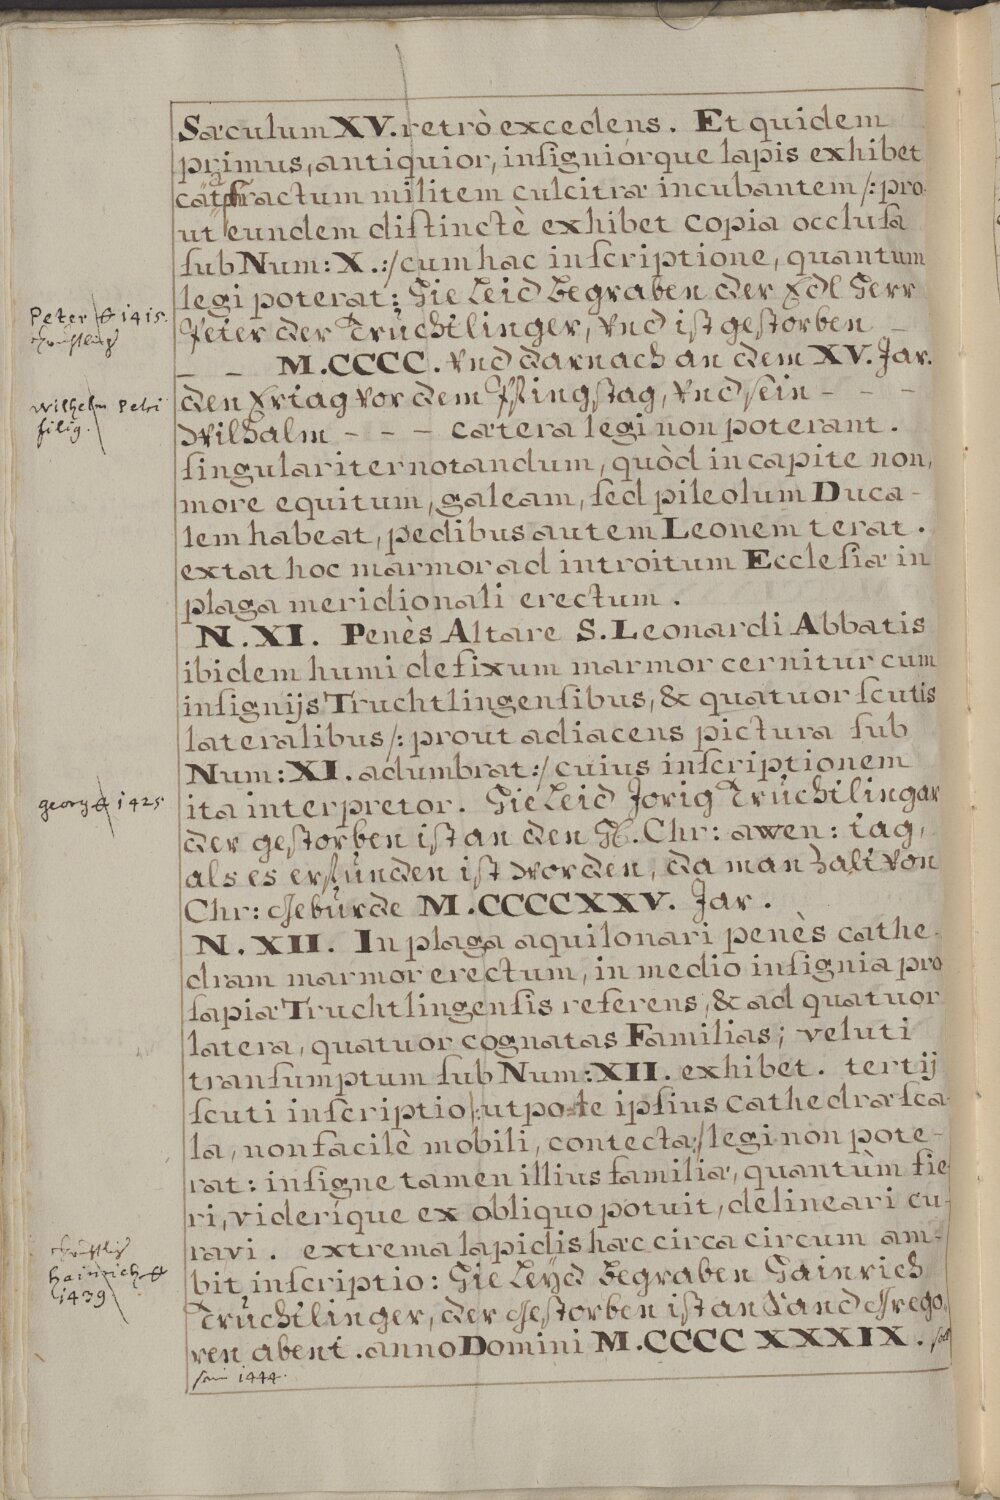 Sæculum XV. retrò excedens. Et quidem
primus, antiquior, insigniorque lapis exhibet
cataphractum militem culcitræ incubantem /: pro-
ut eundem distinctè exhibet copia occlusa
sub Num: X. :/ cum hac inscriptione, quantum
legi poterat: Hie Leid Begraben der Edl Herr
Peter der Trüchtlinger, vnd ist gestorben –
– – M.CCCC. vnd darnach an dem XV. Jar.
den Eriag vor dem Pfingstag, vnd sein – – –
Wilhalm – – – cætera legi non poterant.
singulariter notandum, quòd in capite non,
more equitum, galeam, sed pileolum Duca-
lem habeat, pedibus autem Leonem terat.
extat hoc marmor ad introitum Ecclesiæ in
plaga meridionali erectum.
N. XI. Penès Altare S. Leonardi Abbatis
ibidem humi defixum marmor cernitur cum
insignijs Truchtlingensibus, & quatuor scutis
lateralibus /: prout adiacens pictura sub
Num: XI. adumbrat :/ cuius inscriptionem
ita interpretor. Hie Leid Jorig Trüchtlingar
der gestorben ist an den H. Chr: awen: tag,
als es erfünden ist worden, da man zalt von
Chr: Gebürde M.CCCCXXV. Jar.
N. XII. In plaga aquilonari penès cathe-
dram marmor erectum, in medio insignia pro
sapiæ Truchtlingensis referens, & ad quatuor
latera, quatuor cognatas Familias; veluti
transumptum sub Num: XII. exhibet. tertij
scuti inscriptio /: utpote ipsius cathedræ sca-
la, non facilè mobili, contecta :/ legi non pote-
rat: insigne tamen illius familiæ, quantùm fie-
ri, viderique ex obliquo potuit, delineari cu-
ravi. extrema lapidis hæc circa circum am-
bit inscriptio: Hie Leyd Begraben Hainrich
Trüchtlinger, der Gestorben ist an Sand Grego-
ren abent. anno Domini M.CCCC XXXIX. soll
sein 1444.
Peter † 1415.
Wilhelm Petri
filig.
georg † 1425
hainrich †
1439